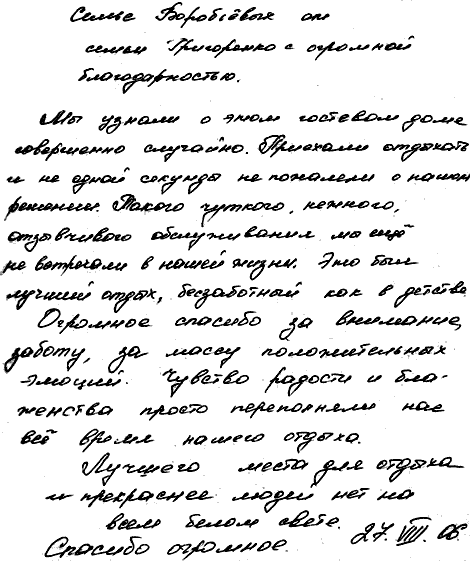 Семье Воробьёвых от
семьи Григоренко с огромной
благодарностью.
Мы узнали о этом гостевом доме
совершенно случайно. Приехали отдыхать
и не одной секунды не пожалели о нашем
решении. Такого чуткого, нежного,
отзывчивого обслуживания мы ещё
не встречали в нашей жизни. Это был
лучший отдых, беззаботный как в детстве
Огромное спасибо за внимание,
заботу, за массу положительных
эмоций. Чувство радости и бла-
женства просто переполняли нас
всё время нашего отдыха.
Лучшего места для отдыха
и прекраснее людей нет на
всем белом свете.
Спасибо огромное. 27. VIII. 06.